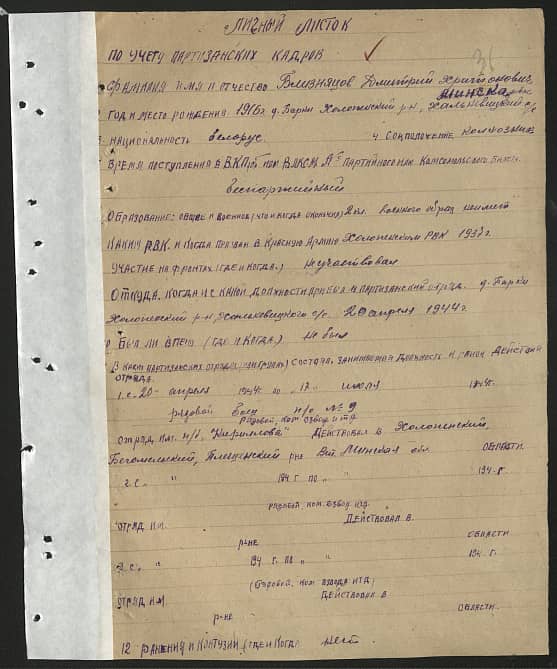 ЛИЧНЫЙ ЛИСТОК
ПО УЧЕТУ ПАРТИЗАНСКИХ КАДРОВ
ФАМИЛИЯ ИМЯ И ОТЧЕСТВО Близнецов Дмитрий Харитонович
Минская обл.
ГОД И МЕСТО РОЖДЕНИЯ 1916г д. Барки Холопенский р-н,
НАЦИОНАЛЬНОСТЬ белорус. 4 СОЦПОЛОЖЕНИЕ колхозник
ВРЕМЯ ПОСТУПЛЕНИЯ В ВКП(б) ИЛИ ВЛКСМ № ПАРТИЙНОГО ИЛИ КОМСОМОЛЬСКОГО БИЛЕТА
беспартийный
ОБРАЗОВАНИЕ: ОБЩЕЕ И ВОЕННОЕ (ЧТО И КОГДА ОКОНЧИЛ) 2 кл. военного образ не имеет
КАКИМ РВК. И КОГДА ПРИЗВАН В КРАСНУЮ АРМИЮ Холопеничским РВК 193 г.
УЧАСТИЕ НА ФРОНТАХ (ГДЕ И КОГДА.) не участвовал
ОТКУДА, КОГДА И С КАКОЙ ДОЛЖНОСТИ ПРИБЫЛ В ПАРТИЗАНСКИЙ ОТРЯД. д. Барки
Холопенский р-н, с/с. 20 апреля 1944г.
БЫЛ ЛИ В ПЛЕНУ (ГДЕ И КОГДА.) не был
В КАКИХ ПАРТИЗАНСКИХ ОТРЯДАХ, СОСТОЯЛ, ЗАНИМАЕМАЯ ДОЛЖНОСТЬ И РАЙОН ДЕЙСТВИЙ
ОТРЯДА.
1. С. 20 апреля 1944г. ПО "17" июля 194 г.
рядовой боец п/о № 9
РЯДОВОЙ, КОМ. ВЗВОД И ТД
ОТРЯД ИМ. п/б. "Кириллова" ДЕЙСТВОВАЛ В Холопенский,
Бегомльский, Плещенский РНЕ Минская обл ОБЛАСТИ
2. С. " 194 Г ПО " 194 Г.
РЯДОВОЙ, КОМ. ВЗВОД. ИТД.
ОТРЯД ИМ. ДЕЙСТВОВАЛ В.
РНЕ ОБЛАСТИ
С. " 194 Г. ПО " 194 Г.
(РЯДОВОЙ, КОМ ВЗВОДА ИТД)
ОТРЯД ИМ ДЕЙСТВОВАЛ В
РНЕ ОБЛАСТИ.
12 РАНЕНИЯ И КОНТУЗИИ (ГДЕ И КОГДА нет.